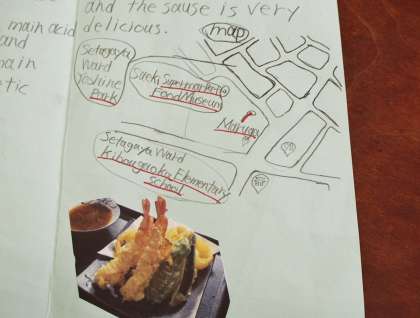 and the sause is very
delicious.
main acid
and
main
etic
map
Setagaya
Ward
Yoshine
Park
Saeki Supermarket
Food Museum
Marugy
Setagaya Ward
Kibougaoka Elementary
School